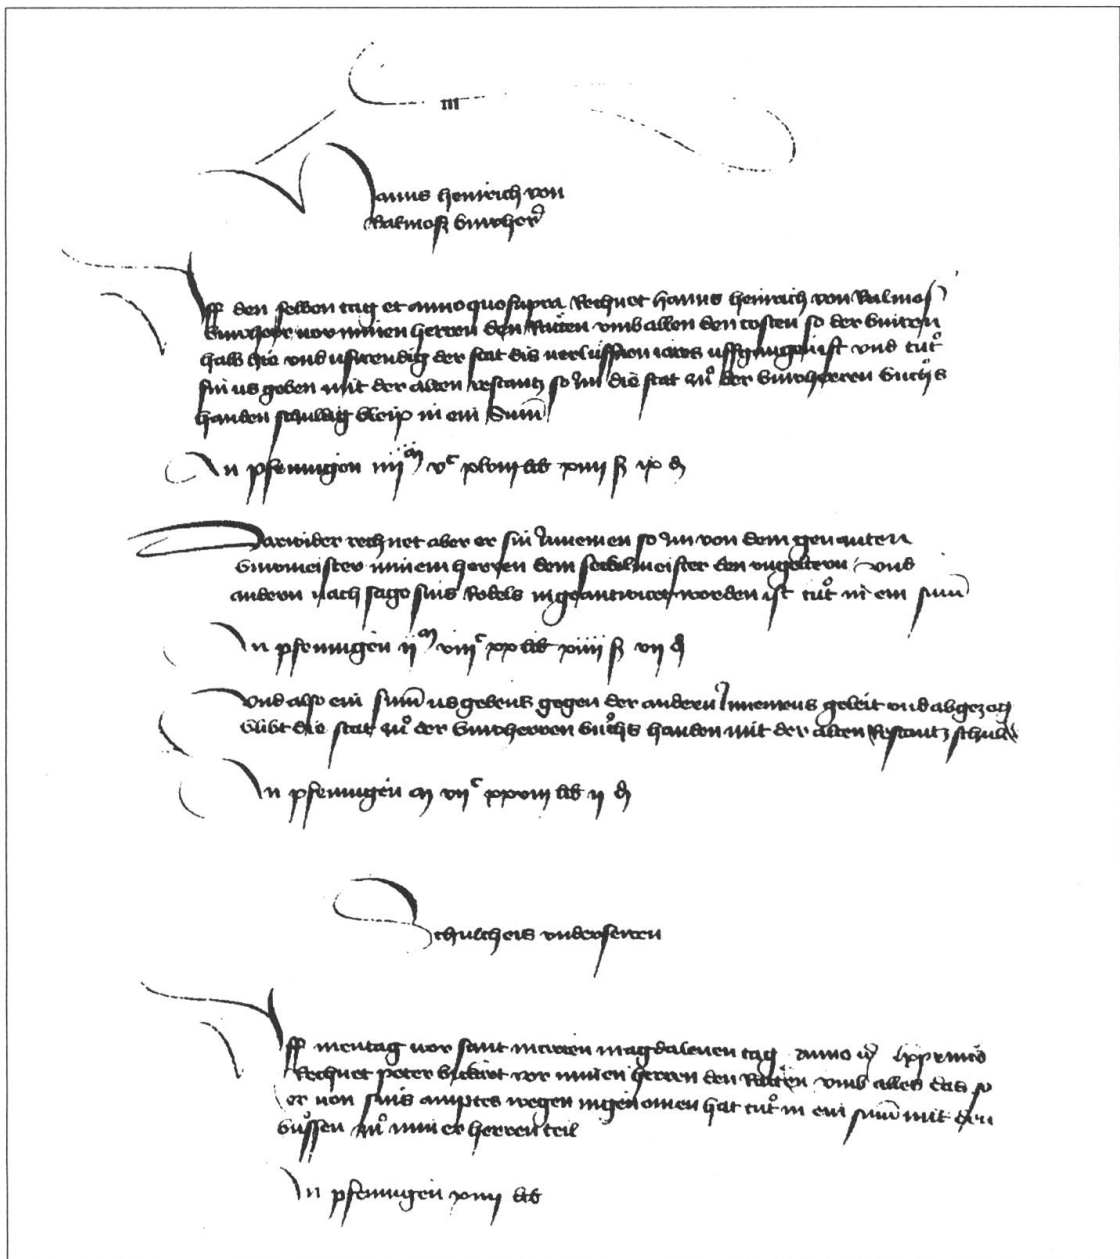 III
Hanns Heinrich von
Balmos Buwherr
Uff den selben tag et anno quo supra Rechnet Hanns Heinrich von Balmos
Buwherr vor minen herren den Räten umb allen den costen so der buwen
halb hie und uswendig der stat dis verlüffnen iares uffgangen ist und tůt
sin us geben mit der alten restantz so im die stat zů der buwherren bůchs
handen schuldig bleip in ein Sum
In pfennigen iiij M vᶜ xlviij lib xiiij ß ix d
Darwider rechnet aber er sin Innemen so im von dem genanten
Buwmeister minem herren dem Sekelmeister den ungeltern und
andern nach sag sins Rodels ingeantwurt worden ist tůt in ein sum
In pfennigen ij M viijᶜ xx lib xiiii ß vij d
Und also ein sum usgebens gegen der andern Innemens geleit und abgezog
blibt die stat zů der buwherren bůchs handen mit der alten Restantz schuldig
In pfennigen M vijᶜ xxviij lib ij d
Schultheis underseven
Uff mentag vor sant marien magdalenen tag anno
Rechnet peter vor minen herren den Räten umb alles das so
er von sins amptes wegen ingenomen hat tůt in ein sum mit den
bůssen zů miner herren teil
In pfennigen xiiij lib